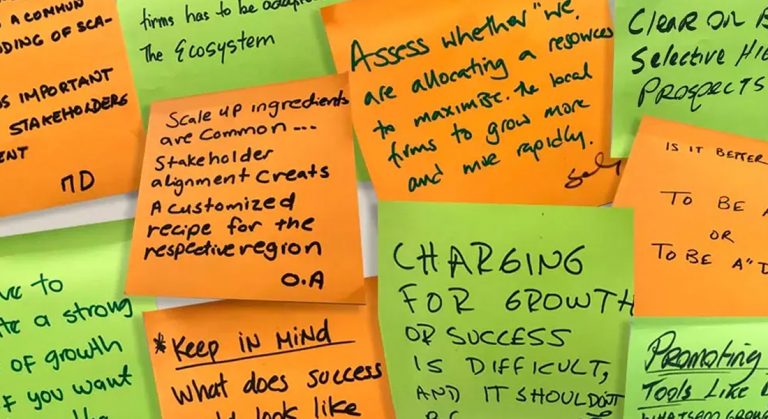 A COMMON
DING OF SCA-
S IMPORTANT
STAKEHOLDERS
ENT
MD
firms has to be
The Ecosystem
Assess whether "we
are allocating a resources
to maximise. the local
firms to grow more
and more rapidly.
CLEAR ON
Selective
PROSPECTS
Scale up ingredients
are common ---
Stakeholder
alignment Creats
A customized
recipe for the
respective region
O.A
IS IT BETTER
TO BE A
OR
TO BE A "D
ve to
te a strong
of growth
if you want
* KEEP IN MIND
What does success
look like
CHARGING
FOR GROWTH
OR SUCCESS
IS DIFFICULT,
AND IT SHOULDN'T
Promoting
Tools Like